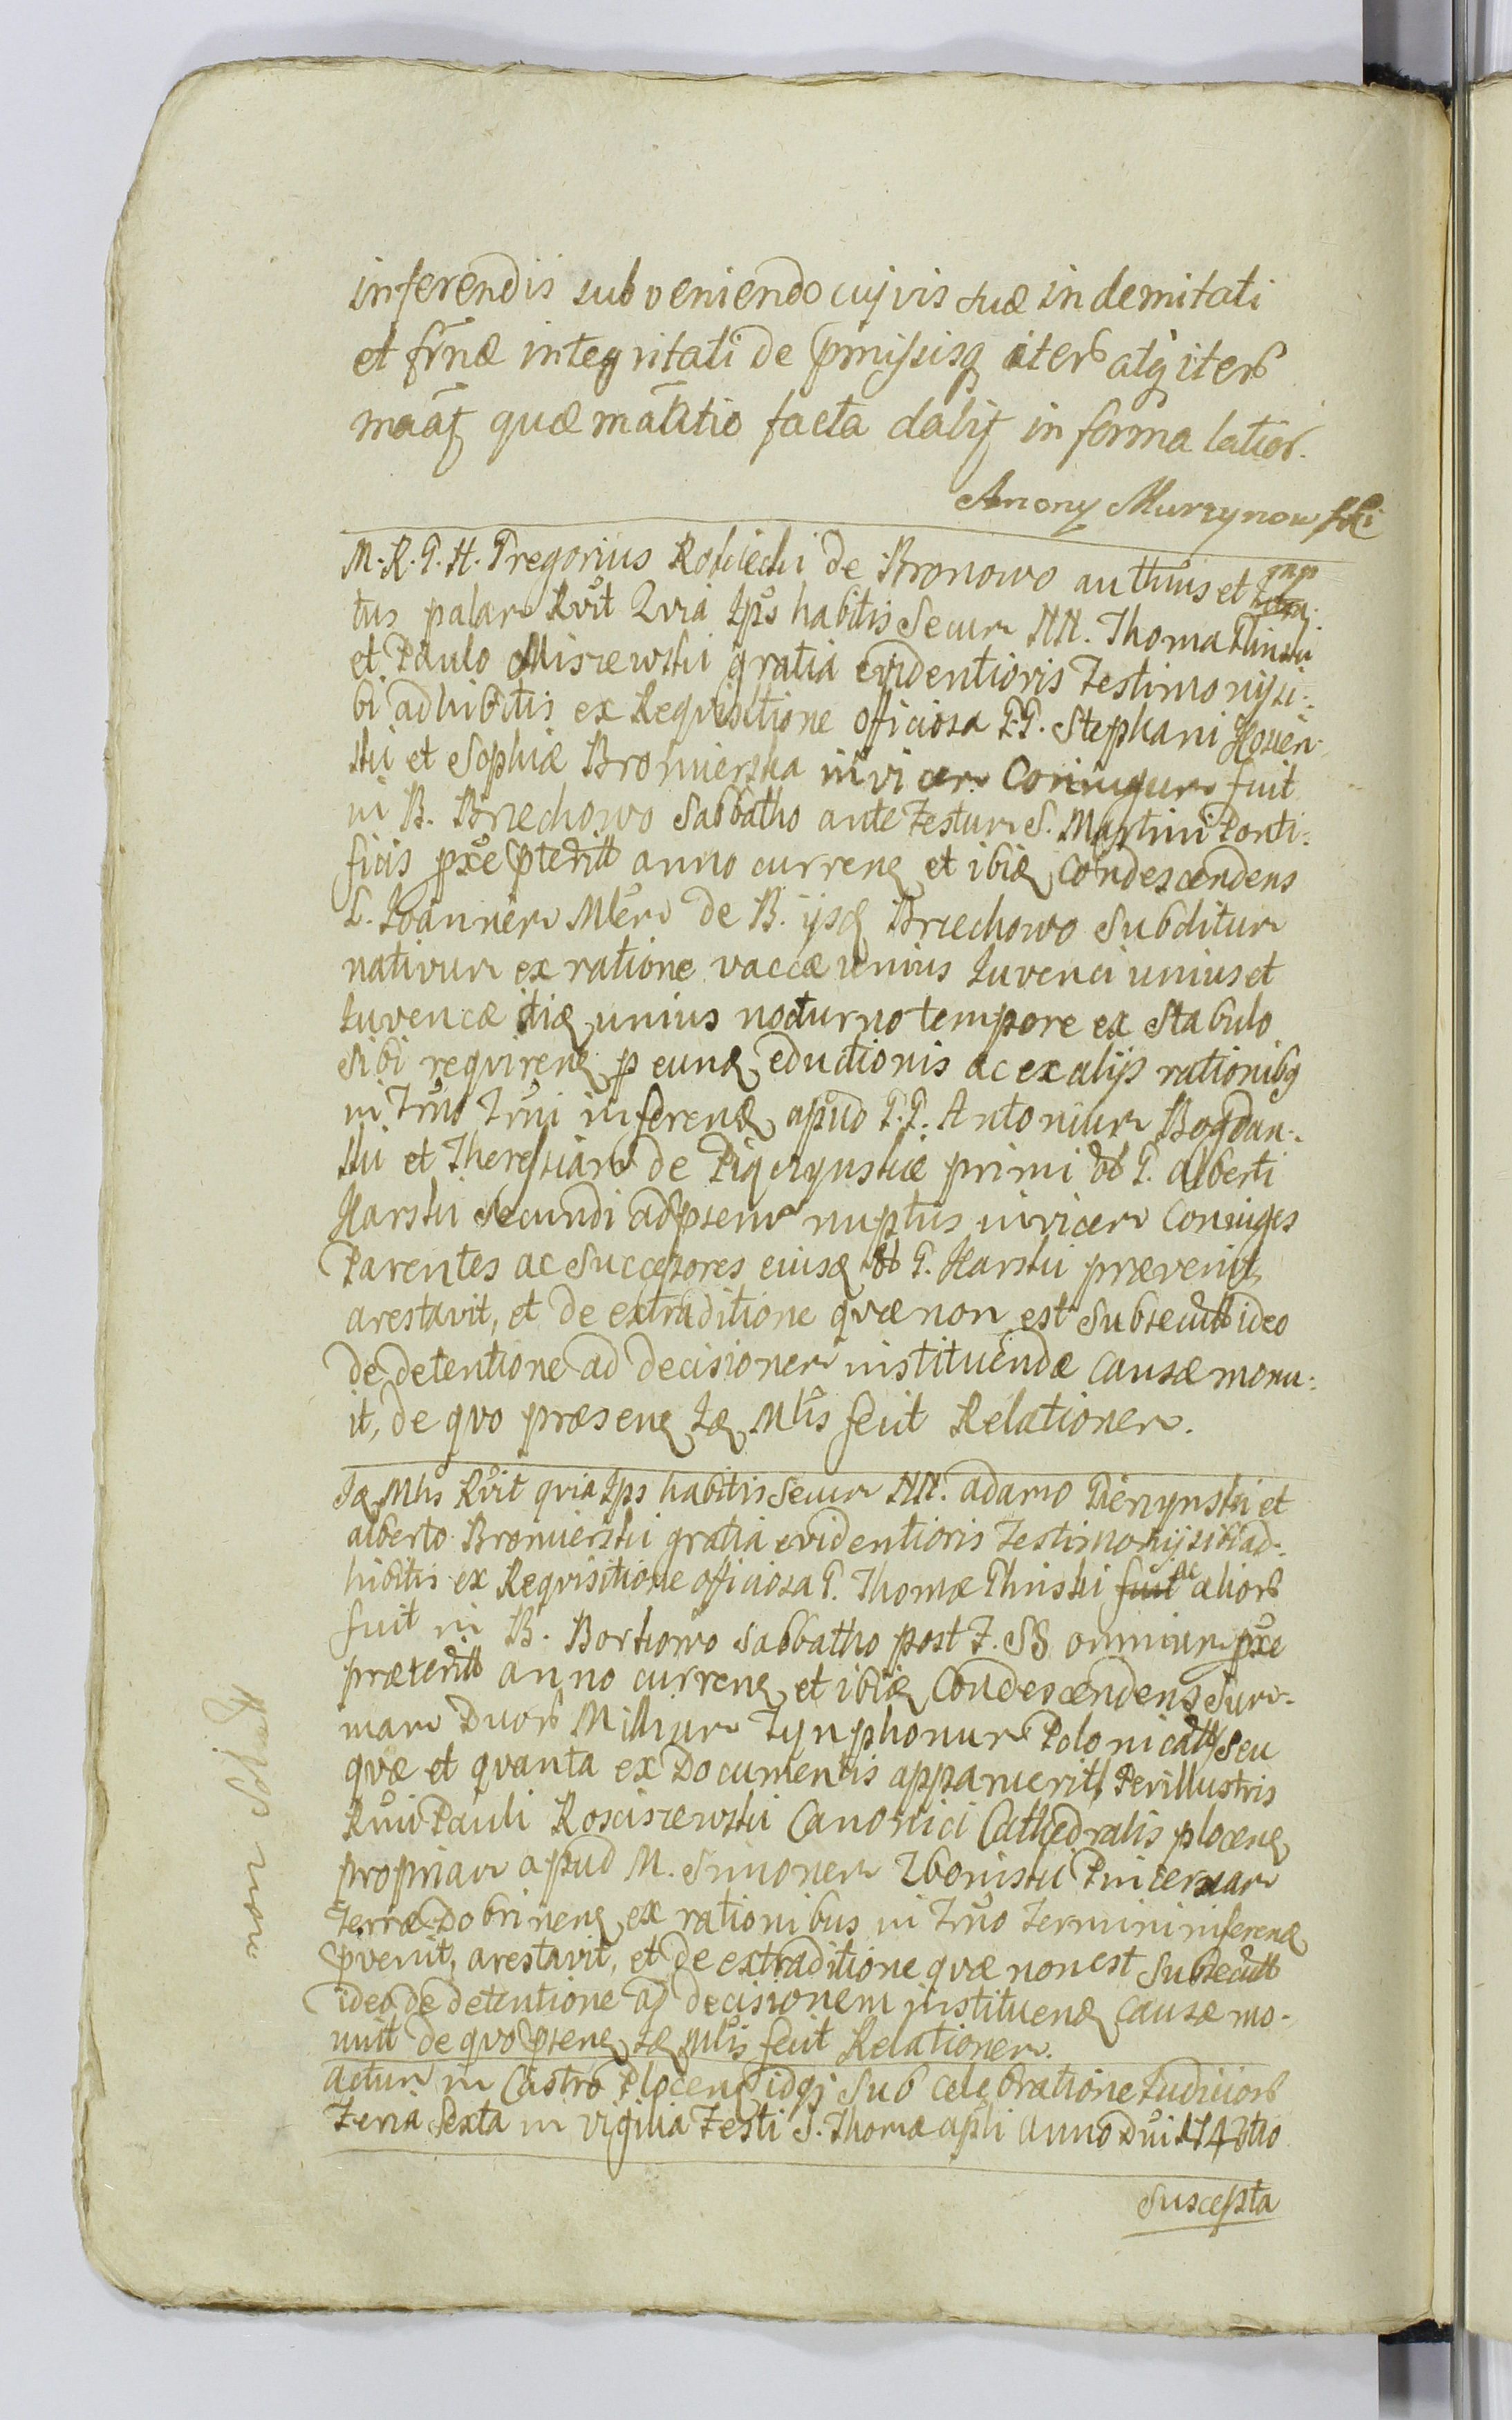 inferendis subveniendo cujvis suæ indemitati
et frnæ integritati de pmissisq iterb atq iterb
maāt quæ manttio facta dabit in forma latiorb.
Antony Murzynowski
M. R. G. H. Gregorius Kościecki de Bronowo authūs et
tus palam Rvit Qvia Ips habitis Secum NN. Thoma Glinski
et Paulo Miszewski gratia evidentioris Testimonij si:
bi adhibitis ex Reqvisitione officiosa G.G. Stephani
ski et Sophiæ Bromierska invicem Coniugum fuit
in B. Brzechowo Sabbatho ante Festum S. Martini Ponti:
ficis pxe pteritt anno curren et ibid condescendens
L. Joannem Mler de B. ijsd Brzechowo Subditum
nativum ex ratione vaccæ unius Juvenci unius et
Juvencæ itid unius nocturno tempore ex Stabulo
sibi reqviren p eund eductionis ac ex alijs rationibq
in Trno Trni inferend apud G.G. Antonium Bogdan:
ski et Theressiam de Pigczynskie primi ol G. Alberti
Karski secundi ad psens nuptus invicem Coniuges
Parentes ac Successores eiusd ol G. Karski prævenit,
arestavit, et de extraditione qvæ non est Subsecutt ideo
de detentione ad decisionem instituendæ causæ monu:
it, de qvo præsen Id Mlis fecit Relationem.
Id Mlis Rvit qvia Ips habitis Secum NN. Adamo Pienynski et
Alberto Bromierski gratia evidentioris Testimonij sibi ad:
hibitis ex Reqvisitione officiosa G. Thomæ Glinski fuit ac aliorb
fuit in B. Borkowo Sabbatho post F. SS. omnium pxe
præteritt anno curren et ibid Condescendens Sum:
mam Duorb Millium Tynphonum Polonicatt seu
qvæ et qvanta ex Documentis apparuerit, Perillustris
Rndi Pauli Kosciszewski Canonici Cathedralis plocen
propriam apud M. Simonem Zboinski Pincernam
Terræ Dobrinen ex rationibus in Trno Termini inferend
pvenit, arestavit, et de extraditione qvæ non est Subsecutt
ideo de detentione ad decisionem instituend causæ mo:
nuit de qvo psens Id Mlis fecit Relationem.
Actum in Castro Plocen idq Sub celebratione Judiciorb
Feria Sexta in vigilia Festi S. Thomæ apli Anno Dni 174
Suscepta